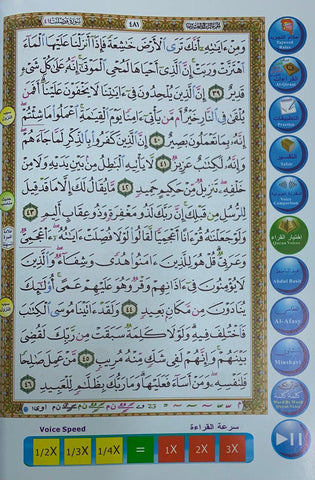 سورة فصلت ٤١
٤٨١
وَمِنْ ءَايَٰتِهِۦٓ أَنَّكَ تَرَى ٱلْأَرْضَ خَٰشِعَةً فَإِذَآ أَنزَلْنَا عَلَيْهَا ٱلْمَآءَ
ٱهْتَزَّتْ وَرَبَتْ ۚ إِنَّ ٱلَّذِىٓ أَحْيَاهَا لَمُحْىِ ٱلْمَوْتَىٰٓ ۚ إِنَّهُۥ عَلَىٰ كُلِّ شَىْءٍ
قَدِيرٌ ٣٩ إِنَّ ٱلَّذِينَ يُلْحِدُونَ فِىٓ ءَايَٰتِنَا لَا يَخْفَوْنَ عَلَيْنَآ ۗ أَفَمَن
يُلْقَىٰ فِى ٱلنَّارِ خَيْرٌ أَم مَّن يَأْتِىٓ ءَامِنًا يَوْمَ ٱلْقِيَٰمَةِ ۚ ٱعْمَلُوا۟ مَا شِئْتُمْ ۖ
إِنَّهُۥ بِمَا تَعْمَلُونَ بَصِيرٌ ٤٠ إِنَّ ٱلَّذِينَ كَفَرُوا۟ بِٱلذِّكْرِ لَمَّا جَآءَهُمْ ۖ
وَإِنَّهُۥ لَكِتَٰبٌ عَزِيزٌ ٤١ لَّا يَأْتِيهِ ٱلْبَٰطِلُ مِنۢ بَيْنِ يَدَيْهِ وَلَا مِنْ
خَلْفِهِۦ ۖ تَنزِيلٌ مِّنْ حَكِيمٍ حَمِيدٍ ٤٢ مَّا يُقَالُ لَكَ إِلَّا مَا قَدْ قِيلَ
لِلرُّسُلِ مِن قَبْلِكَ ۚ إِنَّ رَبَّكَ لَذُو مَغْفِرَةٍ وَذُو عِقَابٍ أَلِيمٍ ٤٣
وَلَوْ جَعَلْنَٰهُ قُرْءَانًا أَعْجَمِيًّا لَّقَالُوا۟ لَوْلَا فُصِّلَتْ ءَايَٰتُهُۥٓ ۖ ءَا۬عْجَمِىٌّ
وَعَرَبِىٌّ ۗ قُلْ هُوَ لِلَّذِينَ ءَامَنُوا۟ هُدًى وَشِفَآءٌ ۖ وَٱلَّذِينَ
لَا يُؤْمِنُونَ فِىٓ ءَاذَانِهِمْ وَقْرٌ وَهُوَ عَلَيْهِمْ عَمًى ۚ أُو۟لَٰٓئِكَ
يُنَادَوْنَ مِن مَّكَانٍۭ بَعِيدٍ ٤٤ وَلَقَدْ ءَاتَيْنَا مُوسَى ٱلْكِتَٰبَ
فَٱخْتُلِفَ فِيهِ ۗ وَلَوْلَا كَلِمَةٌ سَبَقَتْ مِن رَّبِّكَ لَقُضِىَ
بَيْنَهُمْ ۚ وَإِنَّهُمْ لَفِى شَكٍّ مِّنْهُ مُرِيبٍ ٤٥ مَّنْ عَمِلَ صَٰلِحًا
فَلِنَفْسِهِۦ ۖ وَمَنْ أَسَآءَ فَعَلَيْهَا ۗ وَمَا رَبُّكَ بِظَلَّٰمٍ لِّلْعَبِيدِ ٤٦
Tajweed Rules
Al-Quran
Practise
Tafsir
Voice Comparison
اختيار القراء
Quran Voices
Abdul Basit
Al-Afasy
Minshawi
كلمة كلمة
Word By Word
Voice Speed
سرعة القراءة
1/2X 1/3X 1/4X = 1X 2X 3X